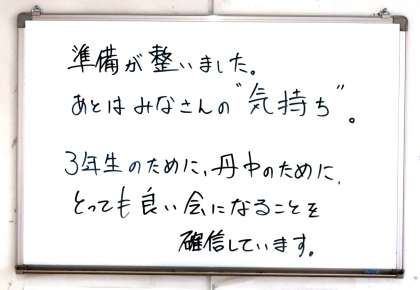 準備が整いました。
あとはみなさんの"気持ち"。
3年生のために、丹中のために、
とっても良い会になることを
確信しています。